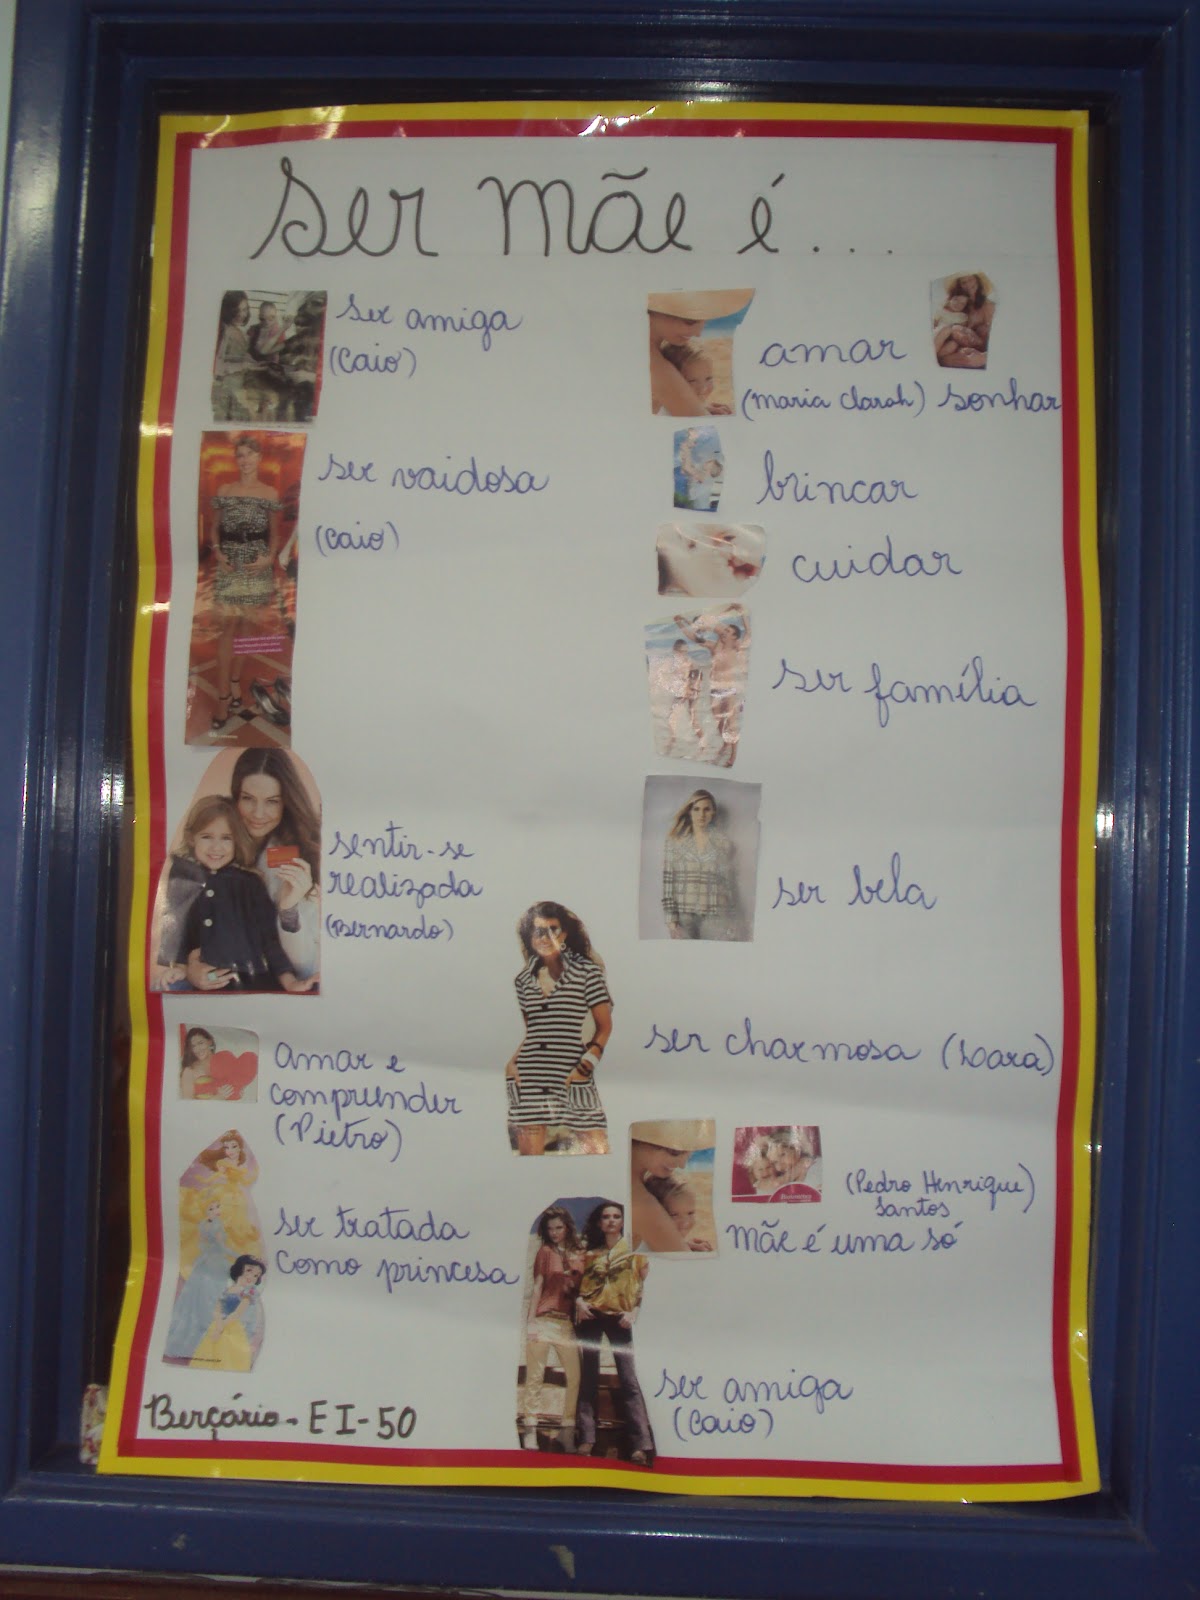 Ser mãe é...
ser amiga
(Caio)
ser vaidosa
(Caio)
sentir-se
realizada
(Bernardo)
amar e
compreender
(Pietro)
ser tratada
como princesa
Berçário - EI-50
amar
(Maria Clarah) sonhar
brincar
cuidar
ser família
ser bela
ser charmosa (Lara)
(Pedro Henrique)
Santos
Mãe é uma só
ser amiga
(Caio)